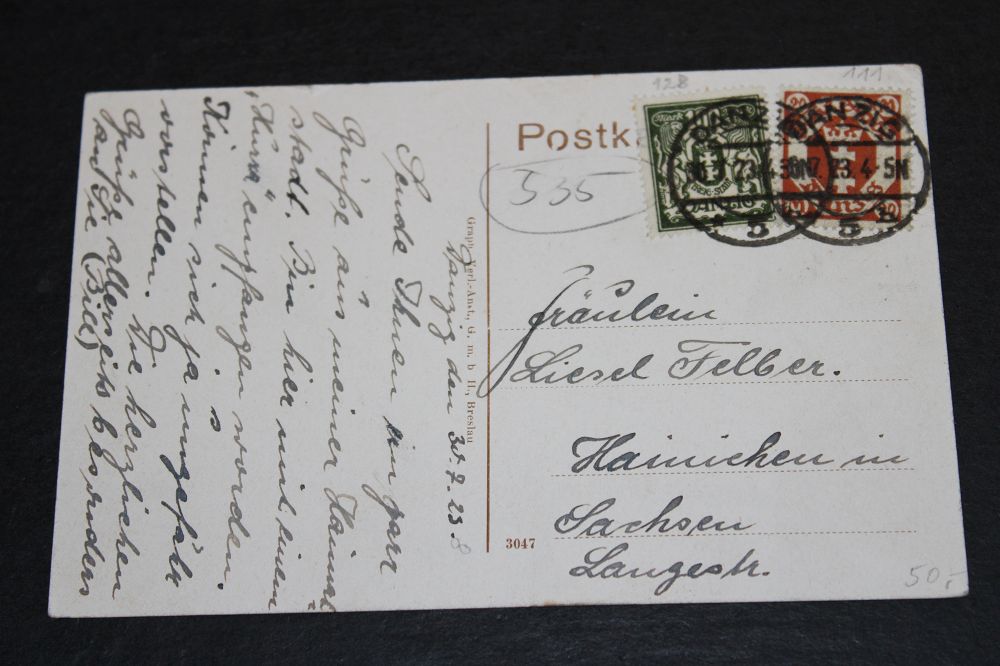 128
111
Postk
535
DANZIG
30.7.23.4-5N
5
DANZIG
4-5N
5
Fräulein
Liesel Felber.
Hainichen in
Sachsen
Langestr.
Graph. Verl.-Anst., G. m. b H., Breslau
3047
50,-
Danzig den 30.7.23.
Sende Ihnen ein paar
Grüße aus meiner Heimat
stadt. Bin hier mit einem
"Hurra" empfangen worden.
Können sich ja ungefähr
vorstellen.
Die herzlichen
Grüße allerseits besonders
an Sie